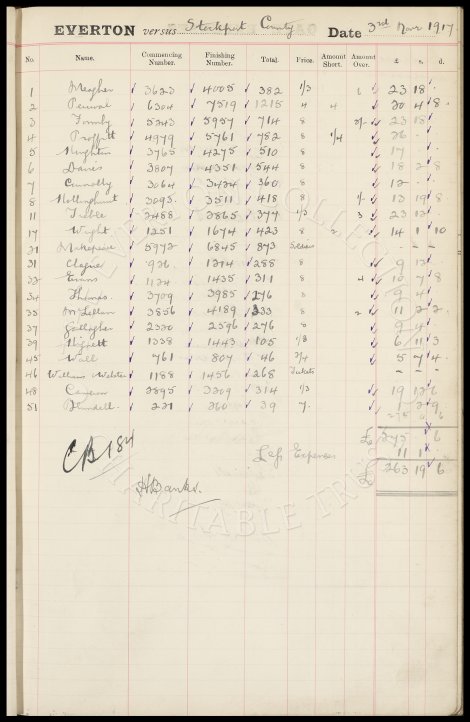 EVERTON versus Stockport County Date 3rd Novr 1917
No. Name. Commencing Number. Finishing Number. Total. Price. Amount Short. Amount Over. £ s. d.
1 Meagher 3623 4005 382 1/3 6 23 18
2 Percival 6304 7519 1215 4 4 20 4 8
3 Formby 5243 5957 714 8 2/- 23 18
4 Proffitt 4979 5761 782 8 1/4 26
5 Mughton 3765 4275 510 8 17
6 Davis 3807 4351 544 8 18 2 8
7 Connolly 3064 3424 360 8 12 -
8 Mollinghurst 3093 3511 418 8 1/- 13 19 8
11 Tibble 3488 3865 377 1/3 3 23 12
17 Wight 1251 1674 423 8 14 1 10
21 Makepeace 5972 6845 873 Soldiers - - -
31 Clague 926 1214 288 8 9 12
33 Evans 1124 1435 311 8 4 10 7 8
34 Thomas 3709 3985 276 8 9 4
35 McLellan 3856 4189 333 8 2 11 2 2
37 Gallagher 2320 2596 276 8 9 4
39 Hignett 1338 1443 105 1/3 6 11 3
45 Wall 761 807 46 2/4 5 7 4
46 William Webster 1188 1456 268 Tickets - - -
48 Cameron 2895 3209 314 1/3 19 12 6
51 Blundell 221 260 39 7 1 2 9
£ 275 6
Less Expenses 11 1
£ 263 19 6
CB 184
H Banks.
EVERTON COLLECTION
CHARITABLE TRUST